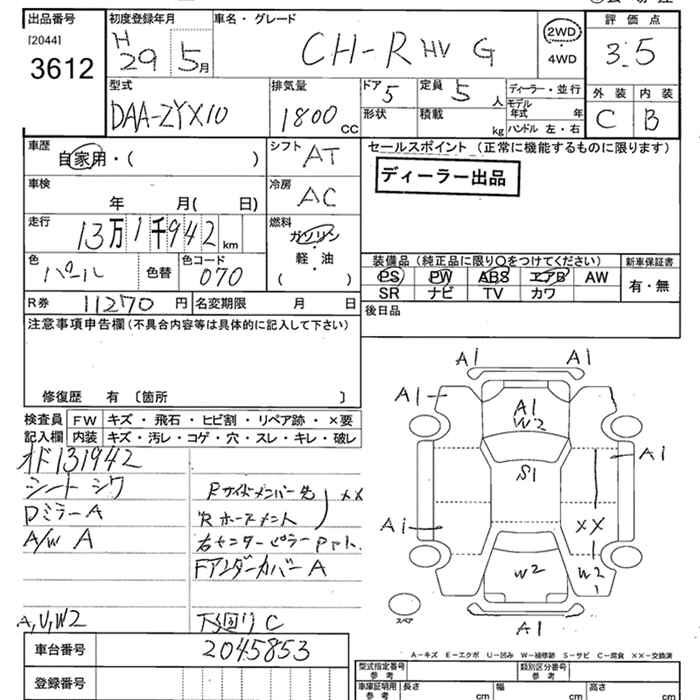 出品番号
[2044]
3612
初度登録年月
H29 5月
車名・グレード
CH-R HV G
2WD
4WD
評価点
3.5
型式
DAA-ZYX10
排気量
1800 CC
ドア 5
定員 5 人
形状
積載 kg
ディーラー・並行
モデル年式 年
ハンドル 左・右
外装 内装
C B
車歴
自家用・( )
シフト AT
セールスポイント (正常に機能するものに限ります)
ディーラー出品
車検
年 月( 日)
冷房 AC
走行
13万1千942 km
燃料
ガソリン
軽・油
( )
色 パール
色替
色コード 070
装備品 (純正品に限り○をつけてください)
新車保証書
PS PW ABS エアB AW
SR ナビ TV カワ
有・無
R券 11270 円
名変期限 月 日
後日品
注意事項申告欄 (不具合内容等は具体的に記入して下さい)
修復歴 有 〔箇所 〕
検査員記入欄
FW キズ・飛石・ヒビ割・リペア跡・×要
内装 キズ・汚レ・コゲ・穴・スレ・キレ・破レ
オド131942
シートシワ
Dミラー A
A/W A
A,U,W2
Rサイドメンバー先
Rホースメント
××
右センターピラーPat.
Fアンダーカバー A
下廻り C
A1 A1
A1
A1
W2
A1
S1
A1
××
W2
W2
A1
スペア
A-キズ E-エクボ U-凹み W-補修跡 S-サビ C-腐食 ××-交換済
車台番号 2045853
登録番号
型式指定番号
類別区分番号
車庫証明用
長さ cm
幅 cm
高さ cm